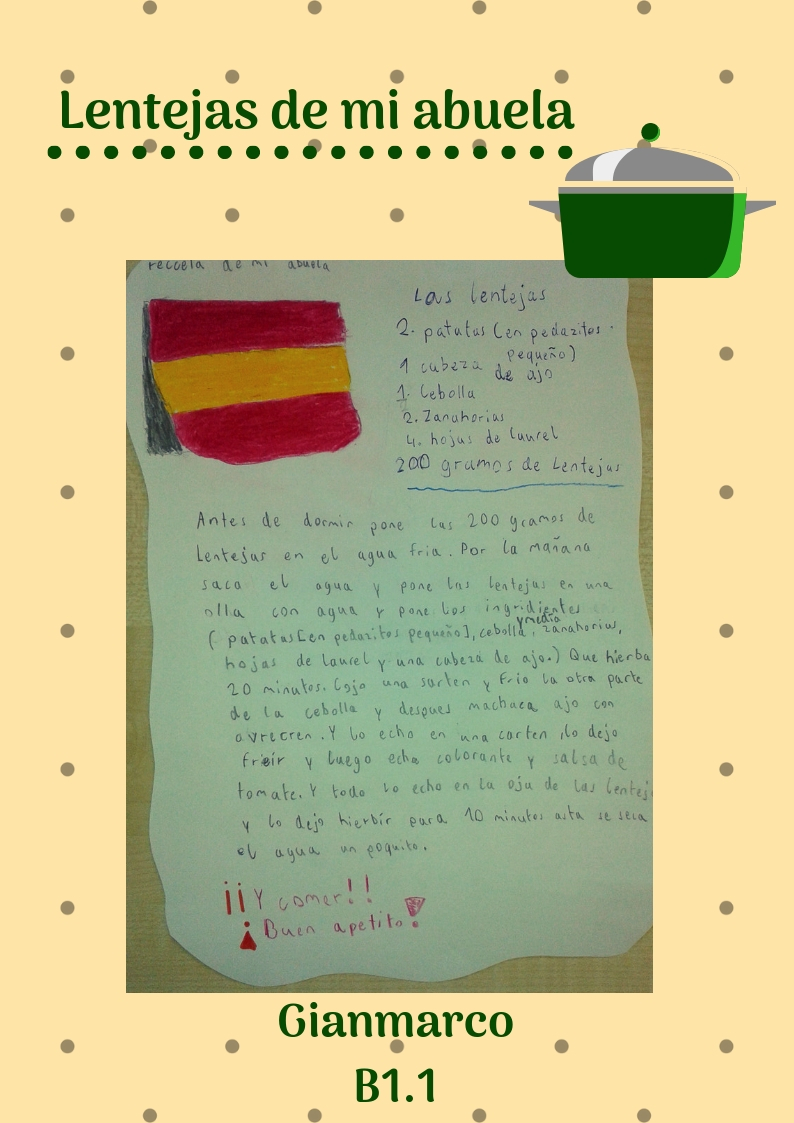 Lentejas de mi abuela
receta de mi abuela
Las lentejas
2. patatas (en pedazitos
pequeño)
1 cabeza de ajo
1. Cebolla
2. Zanahorias
4. hojas de laurel
200 gramos de Lentejas
Antes de dormir pone las 200 gramos de
Lentejas en el agua fria. Por la mañana
saca el agua y pone las lentejas en una
olla con agua y pone los ingridientes
(patatas[en pedazitos pequeño], cebolla y media, zanahorias,
hojas de laurel y una cabeza de ajo.) Que hierba
20 minutos. Cojo una sarten y Frio la otra parte
de la cebolla y despues machaca ajo con
avrecren. Y lo echo en una carten, lo dejo
freir y luego echo colorante y salsa de
tomate. Y todo lo echo en la oja de las lentej
y lo dejo hierbir para 10 minutos asta se seca
el agua un poquito.
¡¡Y comer!!
¡Buen apetito!
Gianmarco
B1.1